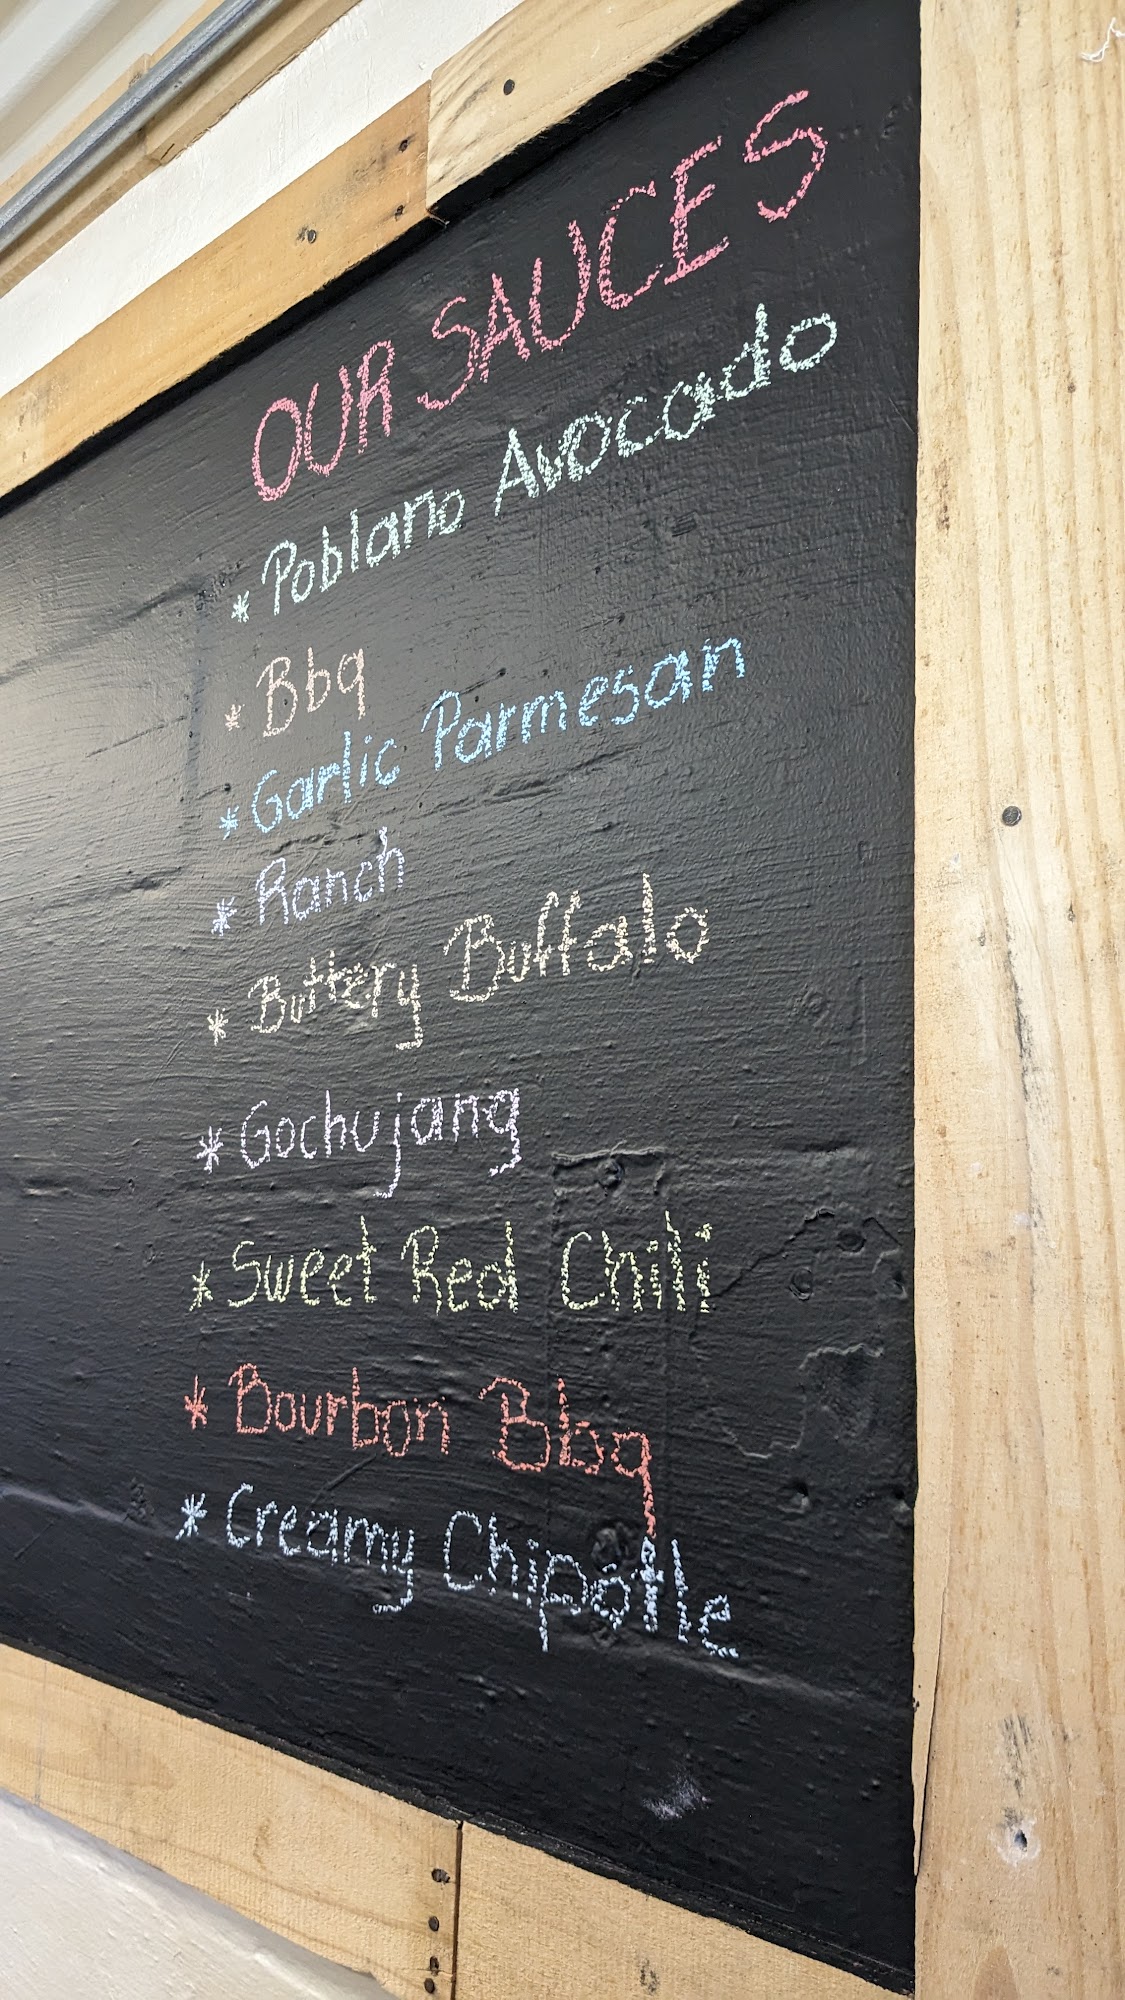 OUR SAUCES
* Poblano Avocado
* Bbq
* Garlic Parmesan
* Ranch
* Buttery Buffalo
* Gochujang
* Sweet Red Chili
* Bourbon Bbq
* Creamy Chipotle